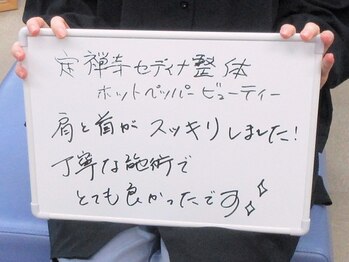 定禅寺セディナ整体
ホットペッパービューティー
肩と首がスッキリしました!
丁寧な施術で
とても良かったです✧✧